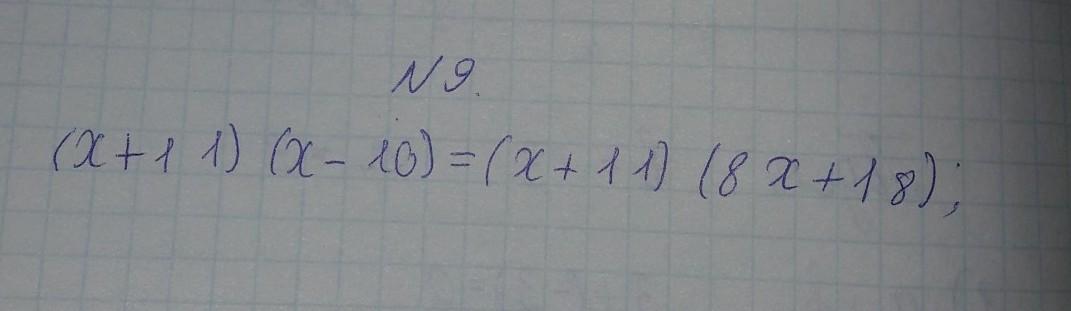 N 9.
(x+11) (x-10)=(x+11) (8x+18);